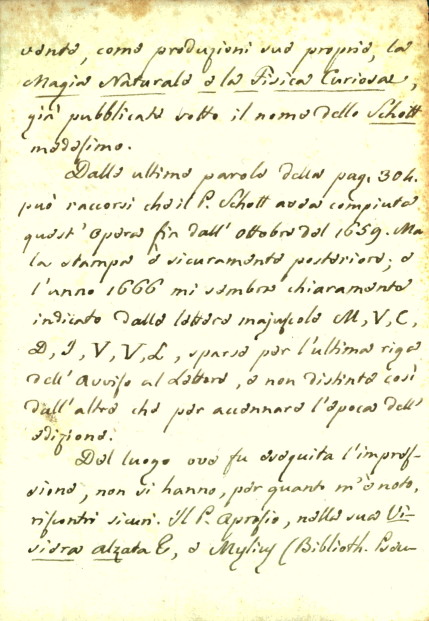 vente, come produzioni sue proprie, la
Magia Naturale e la Fisica Curiosa,
già pubblicate sotto il nome dello Schott
medesimo.
Dalle ultime parole della pag. 304.
può raccorsi che il P. Schott avea compiuta
quest' Opera fin dall' Ottobre del 1659. Ma
la stampa è sicuramente posteriore; e
l'anno 1666 mi sembra chiaramente
indicato dalle lettere majuscole M, V, C,
D, I, V, V, L, sparse per l'ultima riga
dell' Avviso al Lettore, e non distinte così
dall' altre che per accennare l'epoca dell'
edizione.
Del luogo ove fu eseguita l'impres-
sione, non si hanno, per quanto m'è noto,
riscontri sicuri. Il P. Aprosio, nella sua Vi-
siera alzata &, e Mylius (Biblioth. Pseu-